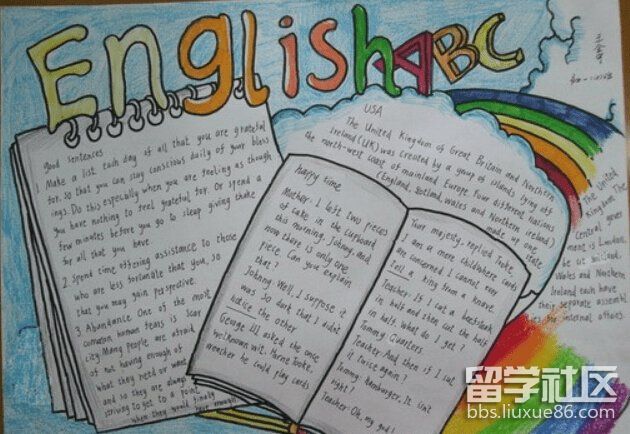 English ABC
Good sentences
1 Make a list each day of all that you are grateful
for, so that you can stay conscious daily of your bless
ings. Do this especially when you are feeling as though
you have nothing to feel grateful for. Or spend a
few minutes before you go to sleep giving thanks
for all that you have
2 Spend time offering assistance to those
who are less fortunate that you, so
that you may gain perspective.
3 Abundance One of the most
common human fears is scar
city. Many people are afraid
of not having enough of
what they need or want
and so they are always
striving to get to a point
when they would finally
have enough
happy time
Mother: I left two pieces
of cake in the cupboard
this morning, Johnny, and
now there is only one
piece. Can you explain
that?
Johnny: Well, I suppose it
was so dark that I didn't
notice the other
George III asked the once
well known wit,
wheather he could play cards
Your majesty, replied Tooke,
I am a mere child where cards
are concerned I cannot even
tell a king from a knave.
Teacher: If I cut a beefsteak
in half and then cut the half
in half. What do I get?
Tommy: Quarters
Teacher: And then if I cut
it twice again?
Tommy: Hamburger. It isn't
right!
Teacher: Oh, my god!
USA
The United Kingdom of Great Britain and Northern
Ireland (UK) was created by a group of islands lying off
the north-west coast of mainland Europe. Four different nations
(England, Scotland, wales and Northern ireland)
made up one
state
The United
Kingdom The
Central gover
ment is London,
Wales and Northern
Ireland each have
their separate assembl
internal affairs.
留学社区
bbs.liuxue86.com